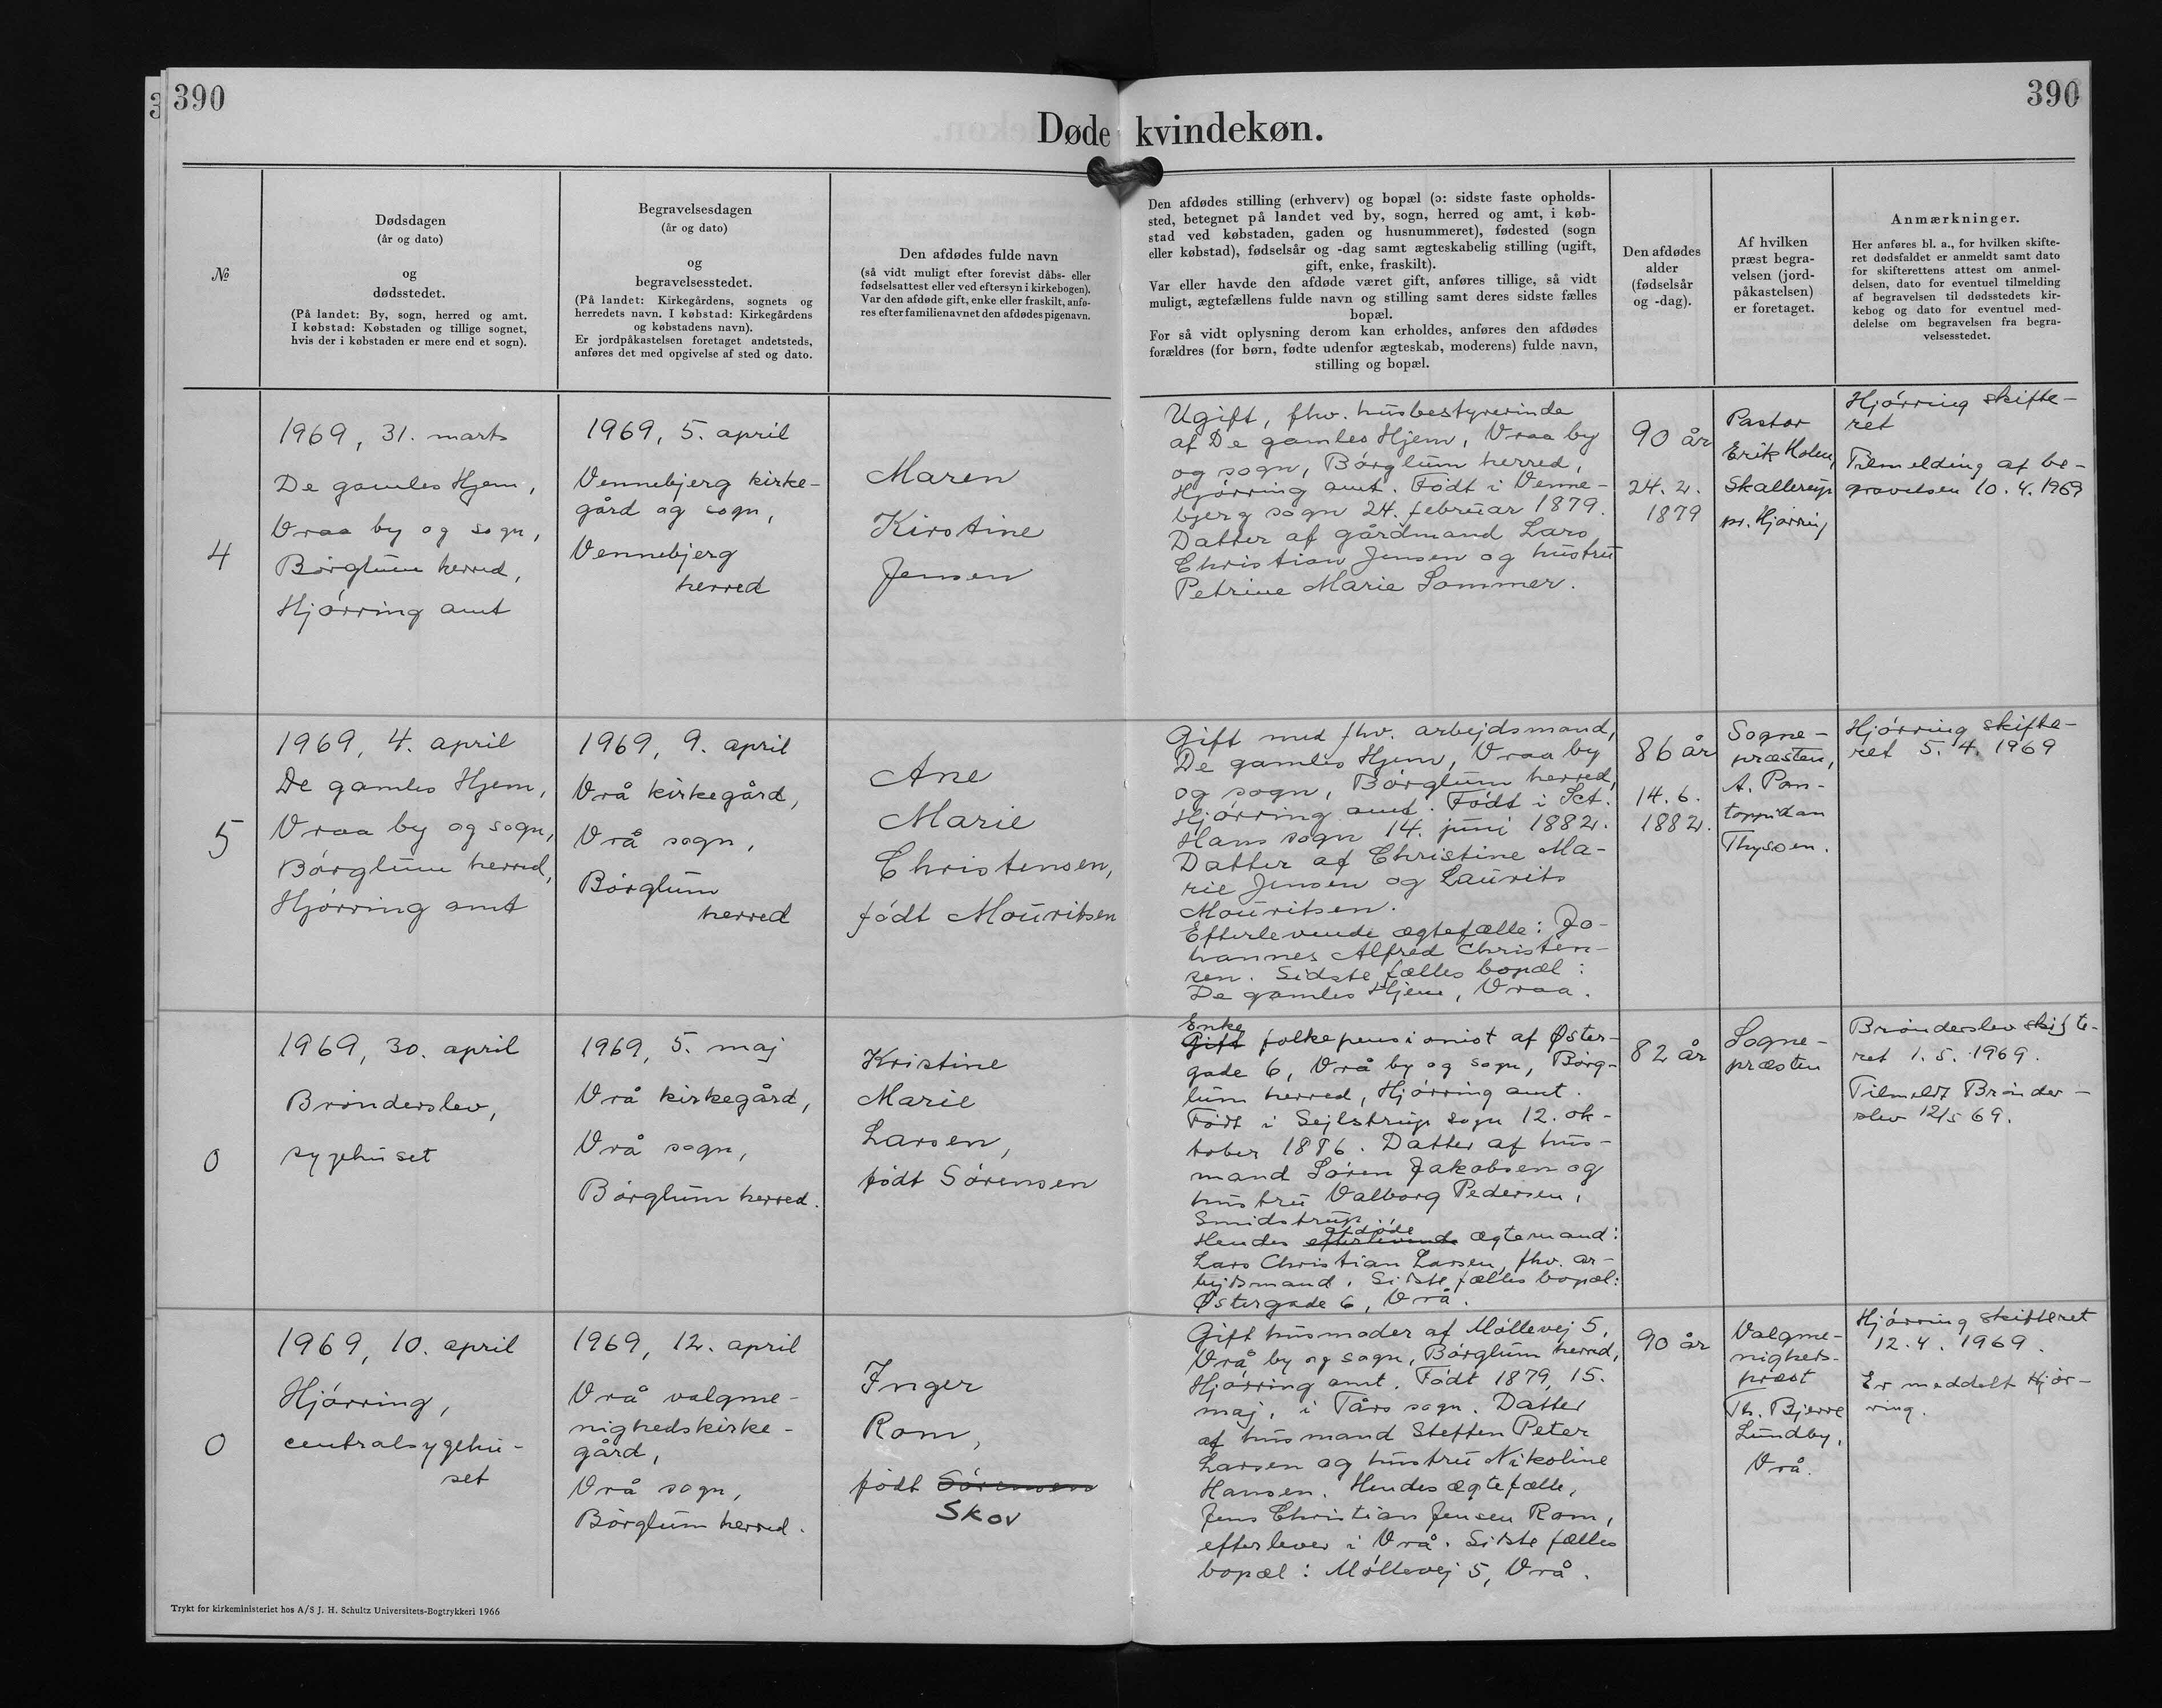 390
390
Døde kvindekøn.
№
Dødsdagen
(år og dato)
og
dødsstedet.
(På landet: By, sogn, herred og amt.
I købstad: Købstaden og tillige sognet,
hvis der i købstaden er mere end et sogn).
Begravelsesdagen
(år og dato)
og
begravelsesstedet.
(På landet: Kirkegårdens, sognets og
herredets navn. I købstad: Kirkegårdens
og købstadens navn).
Er jordpåkastelsen foretaget andetsteds,
anføres det med opgivelse af sted og dato.
Den afdødes fulde navn
(så vidt muligt efter forevist dåbs- eller
fødselsattest eller ved eftersyn i kirkebogen).
Var den afdøde gift, enke eller fraskilt, anfø-
res efter familienavnet den afdødes pigenavn.
Den afdødes stilling (erhverv) og bopæl (ɔ: sidste faste opholds-
sted, betegnet på landet ved by, sogn, herred og amt, i køb-
stad ved købstaden, gaden og husnummeret), fødested (sogn
eller købstad), fødselsår og -dag samt ægteskabelig stilling (ugift,
gift, enke, fraskilt).
Var eller havde den afdøde været gift, anføres tillige, så vidt
muligt, ægtefællens fulde navn og stilling samt deres sidste fælles
bopæl.
For så vidt oplysning derom kan erholdes, anføres den afdødes
forældres (for børn, fødte udenfor ægteskab, moderens) fulde navn,
stilling og bopæl.
Den afdødes
alder
(fødselsår
og -dag).
Af hvilken
præst begra-
velsen (jord-
påkastelsen)
er foretaget.
Anmærkninger.
Her anføres bl. a., for hvilken skifte-
ret dødsfaldet er anmeldt samt dato
for skifterettens attest om anmel-
delsen, dato for eventuel tilmelding
af begravelsen til dødsstedets kir-
kebog og dato for eventuel med-
delelse om begravelsen fra begra-
velsesstedet.
4
1969, 31. marts
De gamles Hjem,
Vraa by og sogn,
Børglum herred,
Hjørring amt
1969, 5. april
Vennebjerg kirke-
gård og sogn,
Vennebjerg
herred
Maren
Kirstine
Jensen
Ugift, fhv. husbestyrerinde
af De gamles Hjem, Vraa by
og sogn, Børglum herred,
Hjørring amt. Født i Venne-
bjerg sogn 24. februar 1879.
Datter af gårdmand Lars
Christian Jensen og hustru
Petrine Marie Sommer.
90 år
24. 2.
1879
Pastor
Erik Holm,
Skallerup
pr. Hjørring
Hjørring skifte-
ret
Tilmelding af be-
gravelsen 10. 4. 1969
5
1969, 4. april
De gamles Hjem,
Vraa by og sogn,
Børglum herred,
Hjørring amt
1969, 9. april
Vrå kirkegård,
Vrå sogn,
Børglum
herred
Ane
Marie
Christensen,
født Mouritsen
Gift med fhv. arbejdsmand,
De gamles Hjem, Vraa by
og sogn, Børglum herred,
Hjørring amt. Født i Sct.
Hans sogn 14. juni 1882.
Datter af Christine Ma-
rie Jensen og Laurits
Mouritsen.
Efterlevende ægtefælle: Jo-
hannes Alfred Christen-
sen. Sidste fælles bopæl:
De gamles Hjem, Vraa.
86 år
14. 6.
1882.
Sogne-
præsten,
A. Pon-
toppidan
Thysoen.
Hjørring skifte-
ret 5. 4. 1969
0
1969, 30. april
Brønderslev,
sygehuset
1969, 5. maj
Vrå kirkegård,
Vrå sogn,
Børglum herred.
Kristine
Marie
Larsen,
født Sørensen
Enke
Gift folkepensionist af Øster-
gade 6, Vrå by og sogn, Børg-
lum herred, Hjørring amt.
Født i Sejlstrup sogn 12. ok-
tober 1886. Datter af hus-
mand Søren Jakobsen og
hustru Valborg Pedersen,
Smidstrup.
afdøde
Hendes efterlevende ægtemand:
Lars Christian Larsen, fhv. ar-
bejdsmand. Sidste fælles bopæl:
Østergade 6, Vrå.
82 år
Sogne-
præsten
Brønderslev skifte-
ret 1. 5. 1969.
Tilmeldt Brønder-
slev 12/5 69.
0
1969, 10. april
Hjørring,
centralsygehu-
set
1969, 12. april
Vrå valgme-
nighedskirke-
gård,
Vrå sogn,
Børglum herred.
Inger
Rom,
født Sørensen
Skov
Gift husmoder af Møllevej 5,
Vrå by og sogn, Børglum herred,
Hjørring amt. Født 1879, 15.
maj, i Tårs sogn. Datter
af husmand Steffen Peter
Larsen og hustru Nikoline
Hansen. Hendes ægtefælle,
Jens Christian Jensen Rom,
efterlever i Vrå. Sidste fælles
bopæl: Møllevej 5, Vrå.
90 år
Valgme-
nigheds-
præst
Th. Bjerre
Lundby,
Vrå.
Hjørring skifteret
12. 4. 1969.
Er meddelt Hjør-
ring.
Trykt for kirkeministeriet hos A/S J. H. Schultz Universitets-Bogtrykkeri 1966